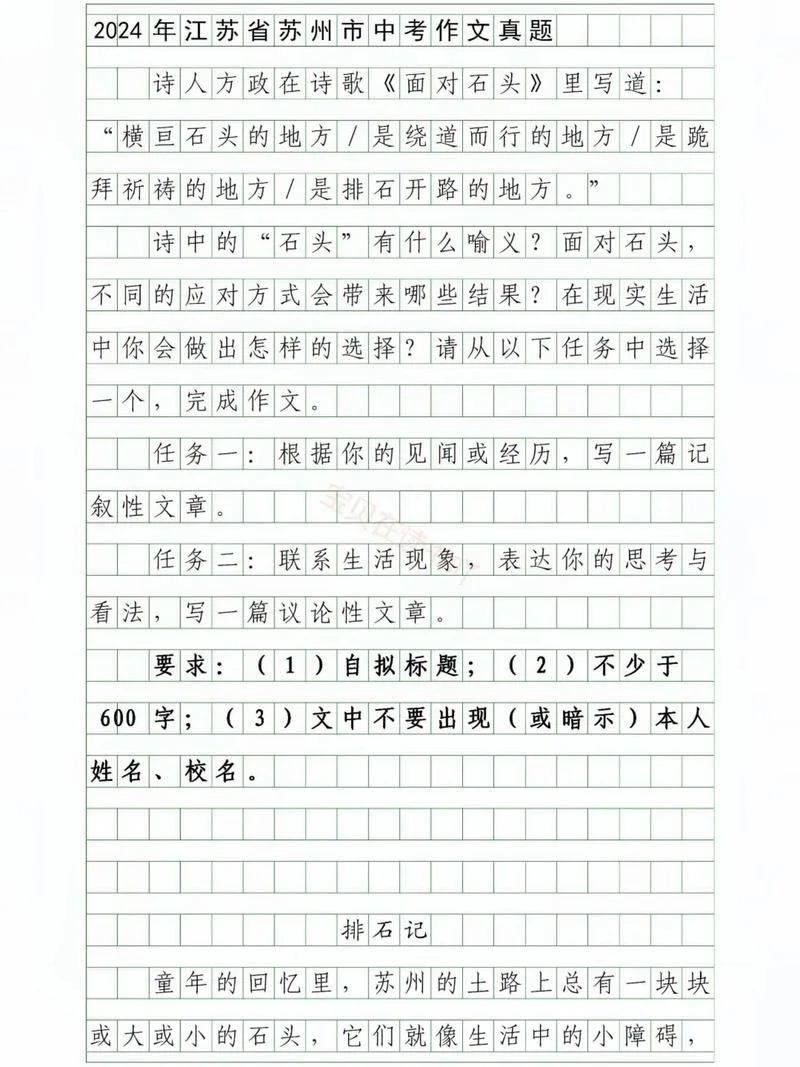 2024年江苏省苏州市中考作文真题
诗人方政在诗歌《面对石头》里写道：
“横亘石头的地方/是绕道而行的地方/是跪
拜祈祷的地方/是排石开路的地方。”
诗中的“石头”有什么喻义？面对石头，
不同的应对方式会带来哪些结果？在现实生活
中你会做出怎样的选择？请从以下任务中选择
一个，完成作文。
任务一：根据你的见闻或经历，写一篇记
叙性文章。
宝贝在读
任务二：联系生活现象，表达你的思考与
看法，写一篇议论性文章。
要求：（1）自拟标题；（2）不少于
600字；（3）文中不要出现（或暗示）本人
姓名、校名。
排石记
童年的回忆里，苏州的土路上总有一块块
或大或小的石头，它们就像生活中的小障碍，